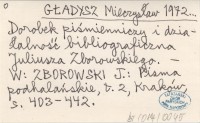 GŁADYSZ Mieczysław 1972...
Dorobek piśmienniczy i dzia-
łalność bibliograficzna
Juliusza Zborowskiego. –
W: ZBOROWSKI J.: Pisma
podhalańskie, t. 2, Kraków,
s. 403–442.